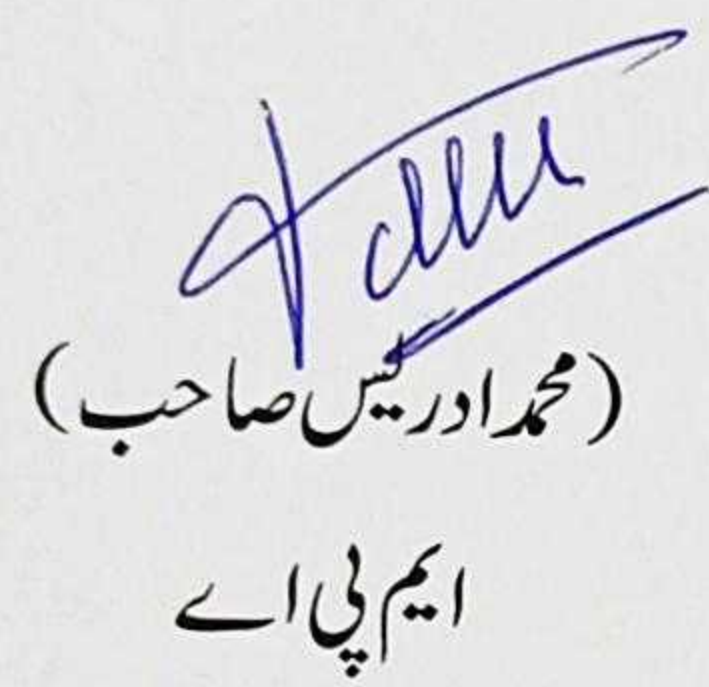 (محمد ادریس صاحب)
ایم پی اے